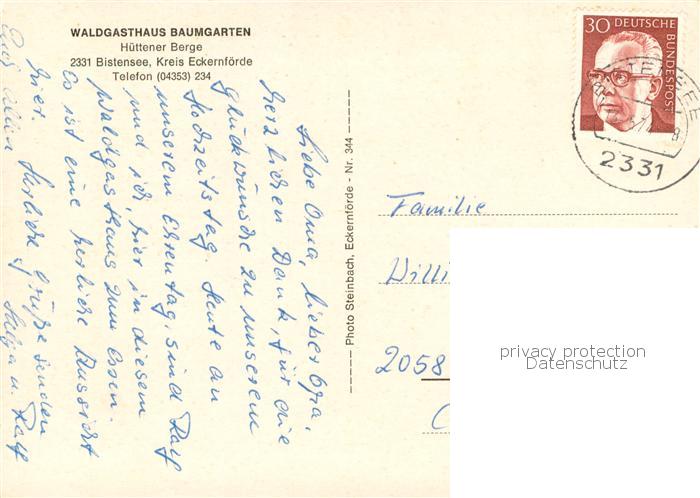 WALDGASTHAUS BAUMGARTEN
Hüttener Berge
2331 Bistensee, Kreis Eckernförde
Telefon (04353) 234
Liebe Oma, lieber Opa,
herzlichen Dank, für die
Glückwünsche zu unserem
Hochzeitstag. Heute an
unserem Ehrentag, sind Ralf
und ich, hier in diesem
Waldgasthaus zum Essen.
Es ist eine herrliche Aussicht
hier. Herzliche Grüße senden
Euch allen Helga u. Ralf
Photo Steinbach, Eckernförde - Nr. 344
30 DEUTSCHE
BUNDESPOST
2331
Familie
Willi
2058
privacy protection
Datenschutz